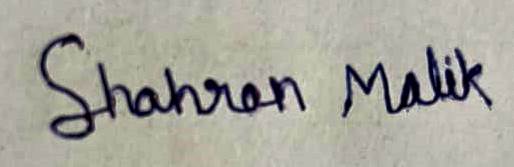 Shahran Malik